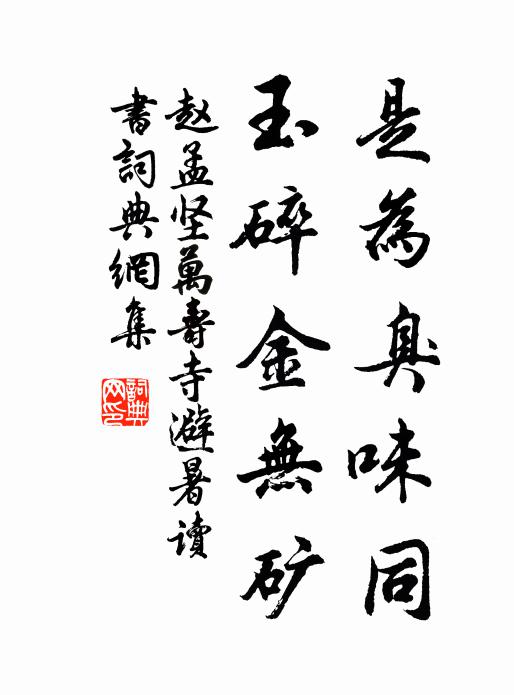 是為臭味同
玉碎金無矿
赵孟坚萬壽寺避暑读
書詞典網集
詞典网印